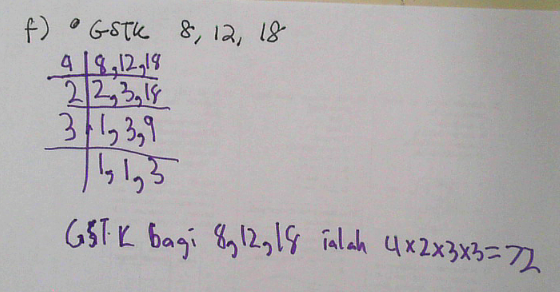 f) • GSTK 8, 12, 18
4 8,12,18
2 2,3,18
3 1,3,9
1,1,3
GSTK bagi 8,12,18 ialah 4x2x3x3=72